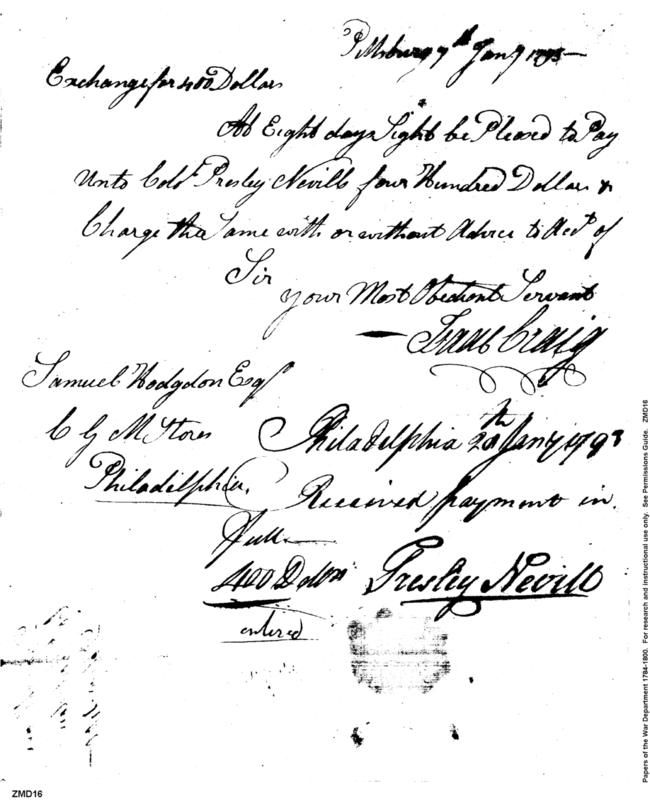 Pittsburg 7th Jany 1793
Exchange for 400 Dollars
At Eight days Sight be Pleased to Pay
Unto Colo. Presley Nevill four Hundred Dollars &
Charge the Same with or without Advice to Acct. of
Sir
your Most Obedient Servant
Isaac Craig
Samuel Hodgdon Esqr
C G M Stores
Philadelphia
Philadelphia 20th Jany 1793
Received payment in
full
400 Dollrs Presley Nevill
entered
Papers of the War Department 1784-1800. For research and instructional use only. See Permissions Guide. ZMD16
ZMD16